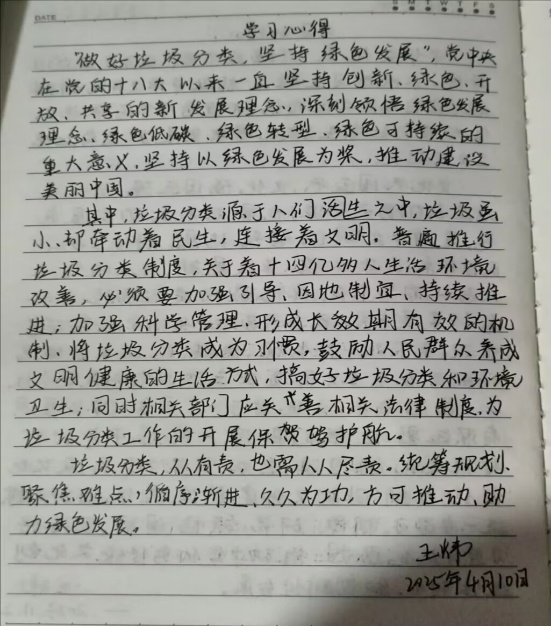 DATE
S M T W T F S
学习心得
“做好垃圾分类,坚持绿色发展”,党中央
在党的十八大以来一直坚持创新、绿色、开
放、共享的新发展理念,深刻领悟绿色发展
理念、绿色低碳、绿色转型、绿色可持续的
重大意义,坚持以绿色发展为桨,推动建设
美丽中国。
其中,垃圾分类源于人们活生之中,垃圾虽
小,却牵动着民生,连接着文明。普遍推行
垃圾分类制度,关于着十四亿多人生活环境
改善,必须要加强引导、因地制宜、持续推
进;加强科学管理.形成长效期有效的机
制、将垃圾分类成为习惯,鼓励人民群众养成
文明健康的生活方式,搞好垃圾分类和环境
卫生;同时相关部门应关善相关法律制度,为
垃圾分类工作的开展保驾驾护航。
垃圾分类,人人有责,也需人人尽责。统筹规划、
聚焦难点,循序渐进、久久为功,方可推动、助
力绿色发展。
王炜
2025年4月10日